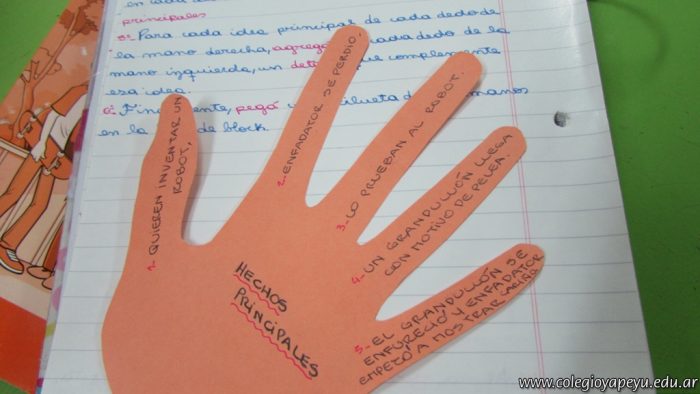 en cada de
principales
5- Para cada idea principal de cada dedo de
la mano derecha, cada dedo de la
mano izquierda, un que complemente
esa idea.
6- pegó manos
en la de block
1- QUIEREN INVENTAR UN
ROBOT,
2- ENFADATOR SE PERDIO.
3- LO PRUEBAN AL ROBOT.
4- UN GRANDULLÓN LLEGA
CON MOTIVO DE PELEA.
5- EL GRANDULLÓN SE
ENFURECIÓ Y ENFADATOR
EMPEZÓ A MOSTRAR CARIÑO
HECHOS
PRINCIPALES
www.colegioyapeyu.edu.ar